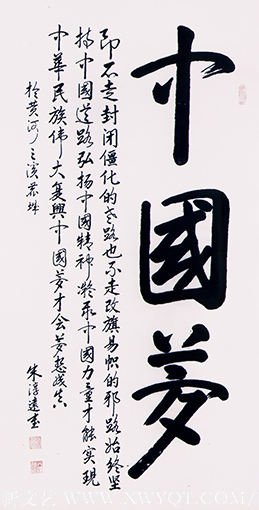 中國夢
即不走封闭僵化的老路也不走改旗易帜的邪路始终坚
持中國道路弘扬中國精神凝聚中國力量才能实现
中華民族伟大复興中國夢才会夢想成真
於黄河之滨
朱淳远书
WWW.XWYQT.COM